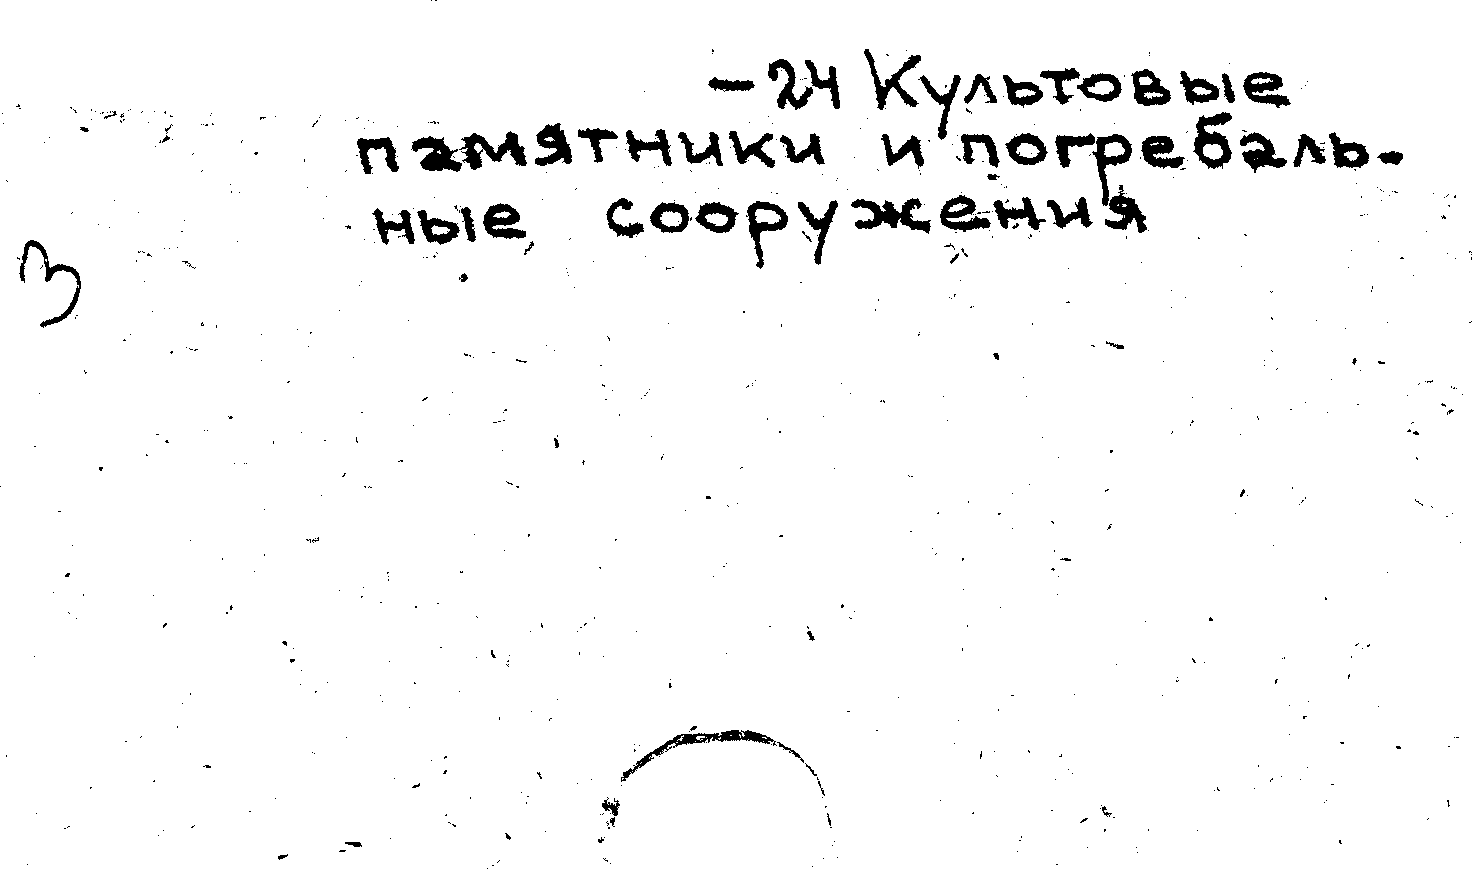 -24 Культовые
памятники и погребаль-
ные сооружения
3